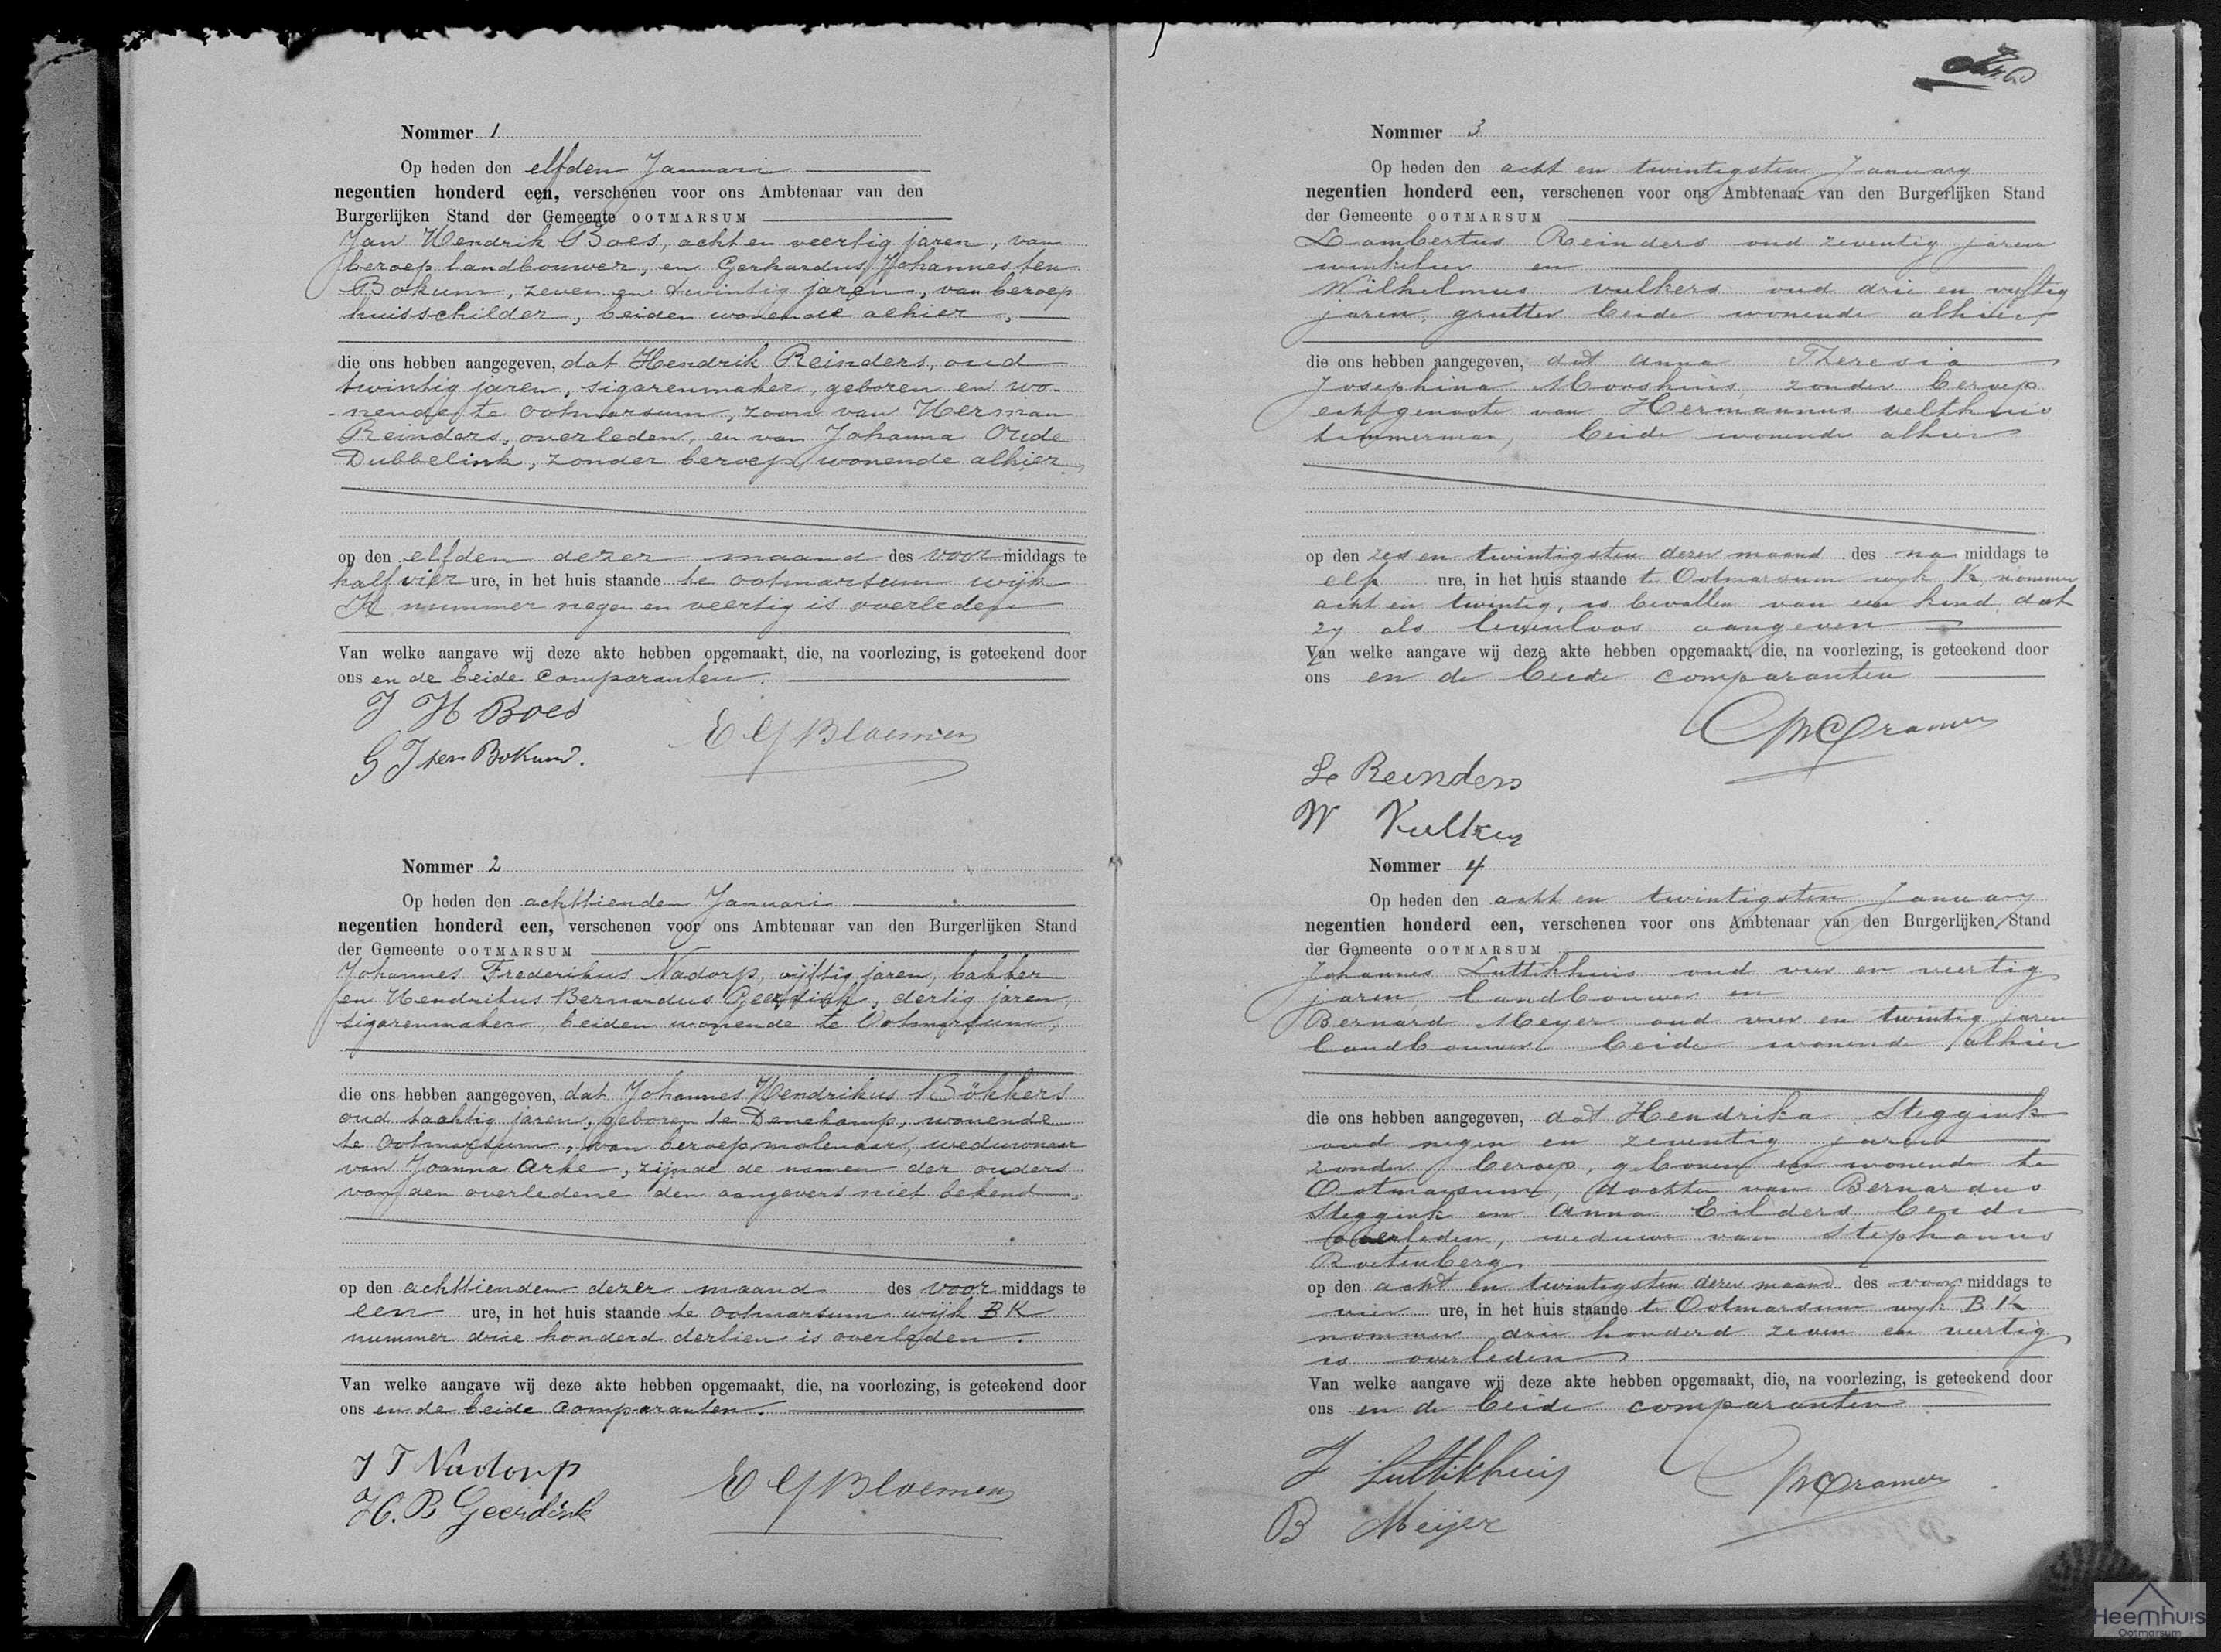 Nommer 1
Op heden den elfden Januari
negentien honderd een, verschenen voor ons Ambtenaar van den
Burgerlijken Stand der Gemeente OOTMARSUM
Jan Hendrik Boes, acht en veertig jaren, van
beroep landbouwer, en Gerhardus Johannes ten
Bokum, zeven en twintig jaren, van beroep
huisschilder, beiden wonende alhier,
die ons hebben aangegeven, dat Hendrik Reinders, oud
twintig jaren, sigarenmaker, geboren en wo-
-nende te Ootmarsum, zoon van Herman
Reinders, overleden, en van Johanna Oude
Dubbelink, zonder beroep wonende alhier,
op den elfden dezer maand des voor middags te
half vier ure, in het huis staande te Ootmarsum wijk
K nummer negen en veertig is overleden
Van welke aangave wij deze akte hebben opgemaakt, die, na voorlezing, is geteekend door
ons en de beide Comparanten.
J H Boes
E G Bloemen
G J ten Bokum.
Nommer 2
Op heden den achttienden Januari
negentien honderd een, verschenen voor ons Ambtenaar van den Burgerlijken Stand
der Gemeente OOTMARSUM
Johannes Frederikus Nadorp, vijftig jaren, bakker
en Hendrikus Bernardus Geerdink, dertig jaren,
sigarenmaker, beiden wonende te Ootmarsum,
die ons hebben aangegeven, dat Johannes Hendrikus Bökkers
oud tachtig jaren, geboren te Denekamp, wonende
te Ootmarsum, van beroep molenaar, weduwnaar
van Joanna Arke, zijnde de namen der ouders
van den overledene den aangevers niet bekend,
op den achttienden dezer maand des voor middags te
een ure, in het huis staande te Ootmarsum wijk BK
nummer drie honderd dertien is overleden.
Van welke aangave wij deze akte hebben opgemaakt, die, na voorlezing, is geteekend door
ons en de beide Comparanten.
J F Nadorp
E G Bloemen
H. B Geerdink
Nommer 3
Op heden den acht en twintigsten January
negentien honderd een, verschenen voor ons Ambtenaar van den Burgerlijken Stand
der Gemeente OOTMARSUM
Lambertus Reinders oud zeventig jaren
winkelier en
Wilhelmus vulkers oud drie en vyftig
jaren, grutter beide wonende alhier,
die ons hebben aangegeven, dat Anna Theresia
Josephina Morshuis, zonder beroep
echtgenoote van Hermannus velthuis
timmerman, beide wonende alhier
op den zes en twintigsten dezer maand des na middags te
elf ure, in het huis staande te Ootmarsum wyk K nommer
acht en twintig, is bevallen van een kind dat
zy als levenloos aangeven
Van welke aangave wij deze akte hebben opgemaakt, die, na voorlezing, is geteekend door
ons en de beide comparanten
Cramer
L Reinders
W Vulkers
Nommer 4
Op heden den acht en twintigsten January
negentien honderd een, verschenen voor ons Ambtenaar van den Burgerlijken Stand
der Gemeente OOTMARSUM
Johannes Luttikhuis oud vier en veertig
jaren landbouwer en
Bernard Meyer oud vier en twintig jaren
landbouwer beide wonende alhier
die ons hebben aangegeven, dat Hendrika Steggink
oud negen en zeventig jaren
zonder beroep, geboren en wonende te
Ootmarsum, dochter van Bernardus
Steggink en Anna Eilders beide
overleden, weduwe van Stephanus
Roetenberg
op den acht en twintigsten dezer maand des voor middags te
vier ure, in het huis staande te Ootmarsum wyk BK
nommer drie honderd zeven en veertig
is overleden
Van welke aangave wij deze akte hebben opgemaakt, die, na voorlezing, is geteekend door
ons en de beide comparanten
J Luttikhuis
Cramer
B Meijer
Heemhuis
Ootmarsum